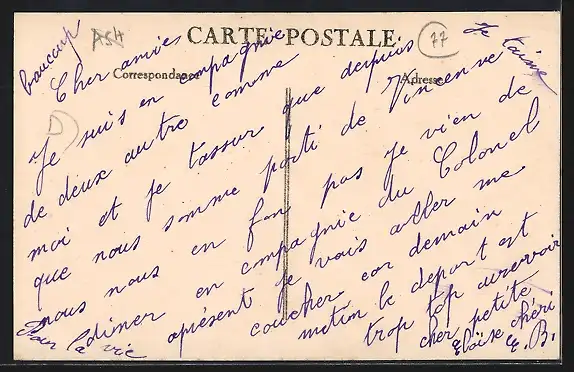 CARTE POSTALE
Correspondance
Adresse
ASH
77
D
Cher amie
Je suis en compagnie
de deux autre comme
moi et je tassur que depuis
que nous somme parti de Vincenne
nous nous en fon pas je vien de
diner en compagnie du Colonel
aprésent je vais aller me
coucher car demain
matin le depart est
trop top aurevoir
cher petite
Eloïse chéri
E. B.
Pour la vie
Je taime
beaucoup